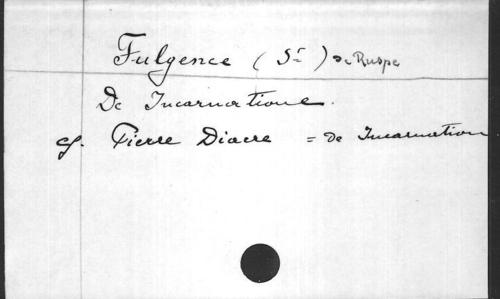 Fulgence (St) de Ruspe
De Incarnatione.
cf. Pierre Diacre = de Incarnation